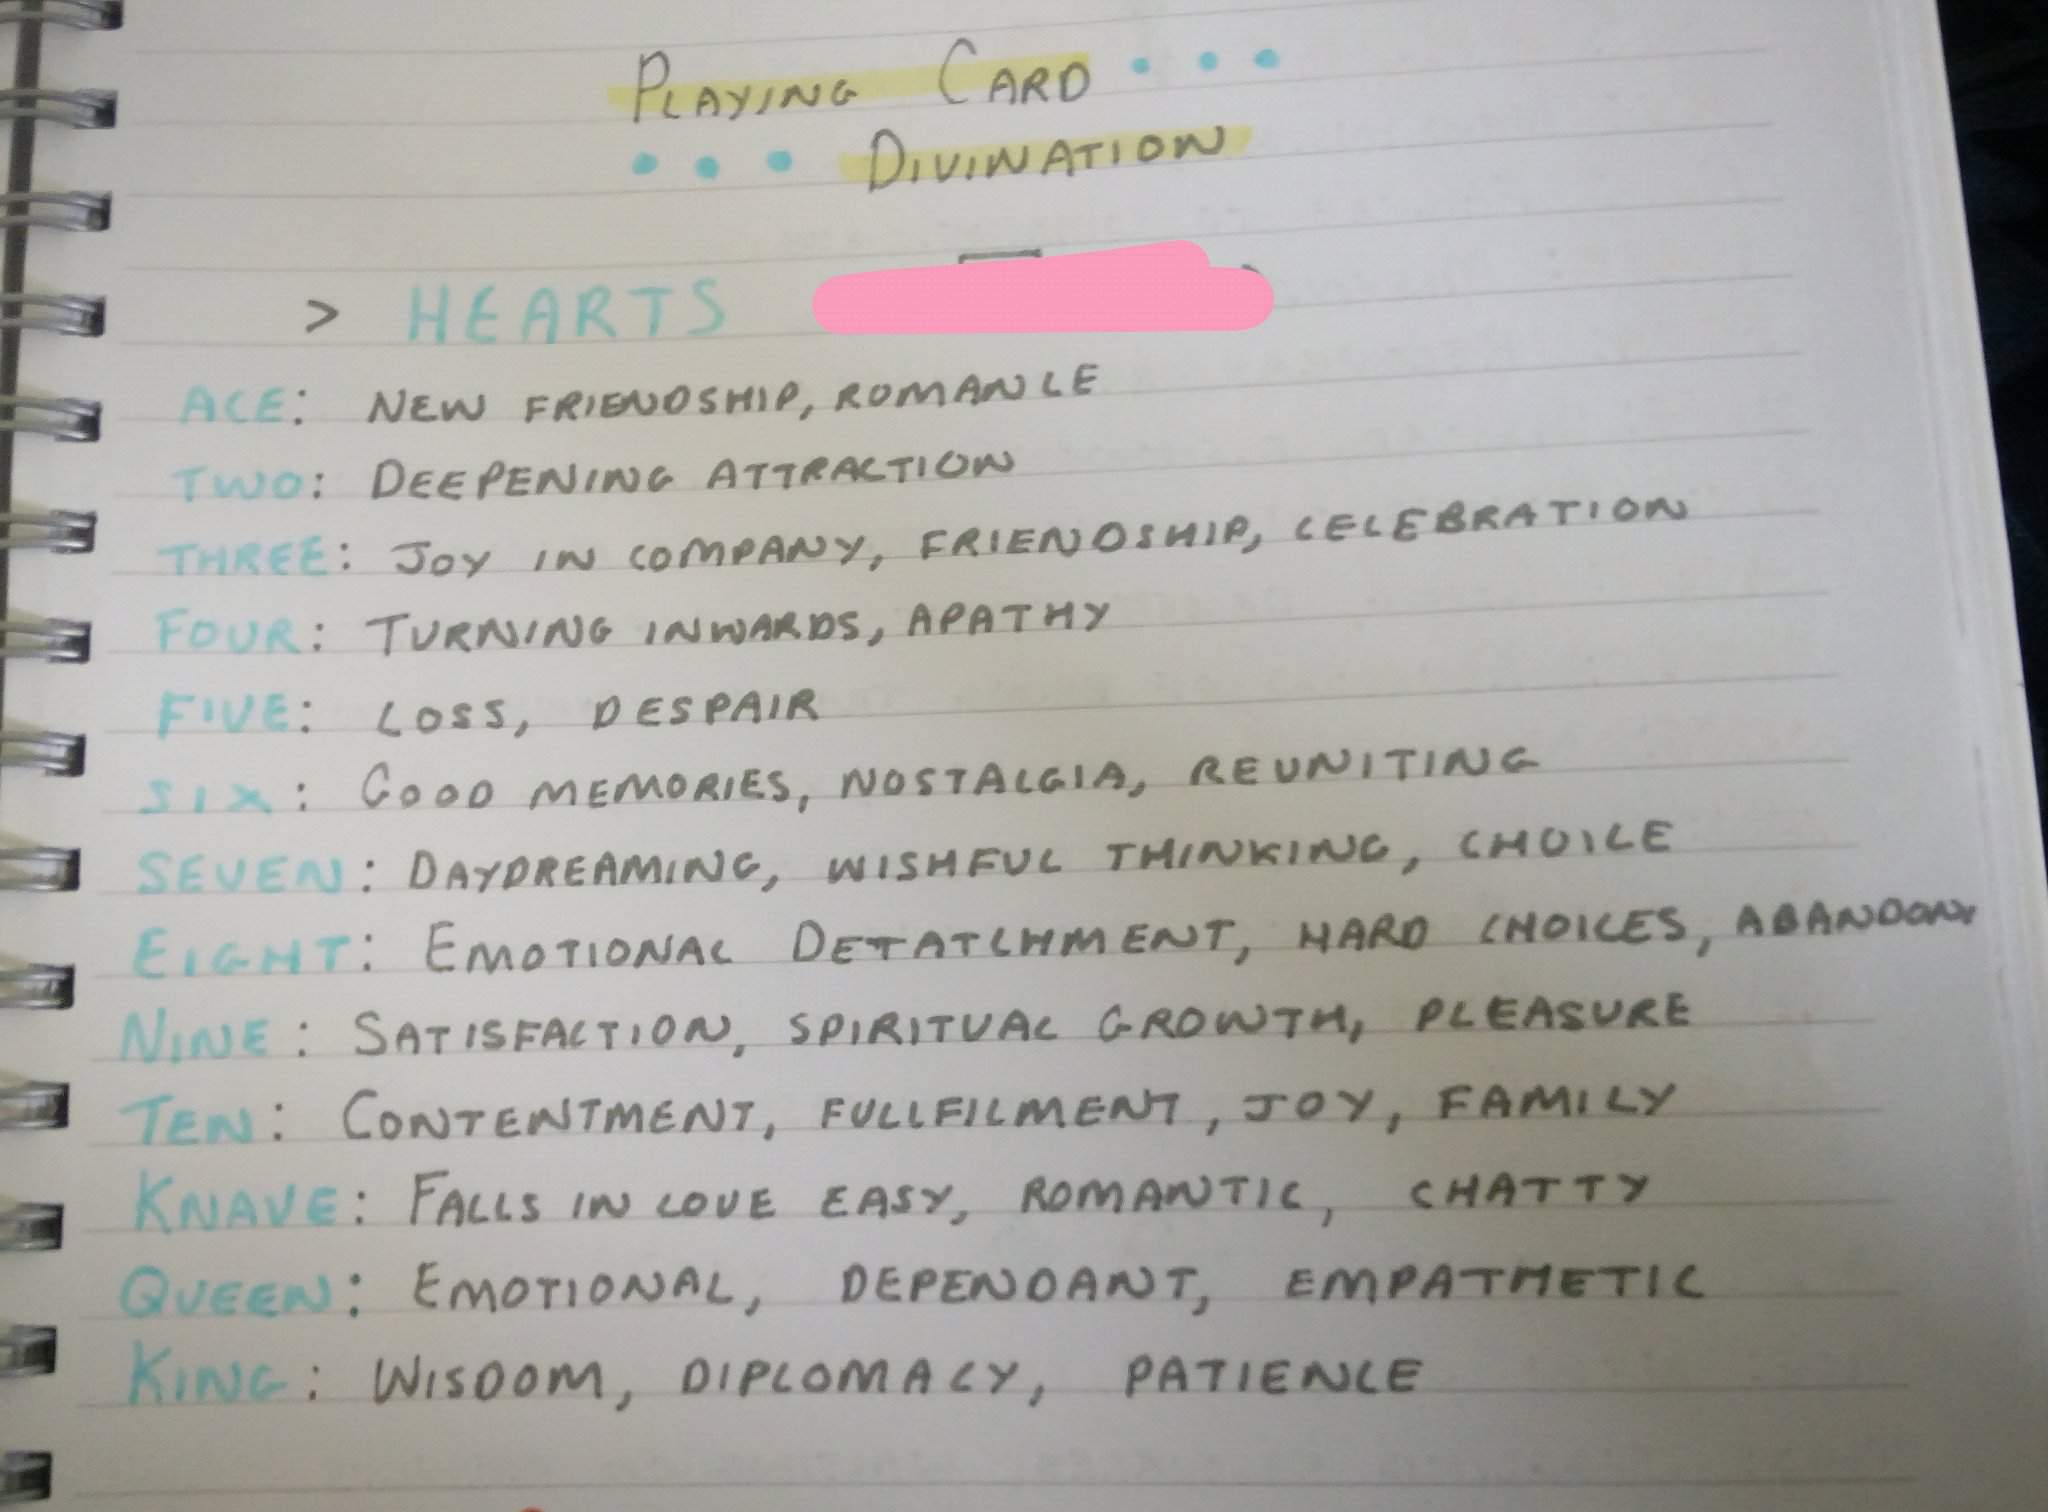 PLAYING CARD
DIVINATION
> HEARTS
ACE: NEW FRIENDSHIP, ROMANCE
TWO: DEEPENING ATTRACTION
THREE: JOY IN COMPANY, FRIENDSHIP, CELEBRATION
FOUR: TURNING INWARDS, APATHY
FIVE: LOSS, DESPAIR
SIX: GOOD MEMORIES, NOSTALGIA, REUNITING
SEVEN: DAYDREAMING, WISHFUL THINKING, CHOICE
EIGHT: EMOTIONAL DETATCHMENT, HARD CHOICES, ABANDON
NINE: SATISFACTION, SPIRITUAL GROWTH, PLEASURE
TEN: CONTENTMENT, FULLFILMENT, JOY, FAMILY
KNAVE: FALLS IN LOVE EASY, ROMANTIC, CHATTY
QUEEN: EMOTIONAL, DEPENDANT, EMPATHETIC
KING: WISDOM, DIPLOMACY, PATIENCE